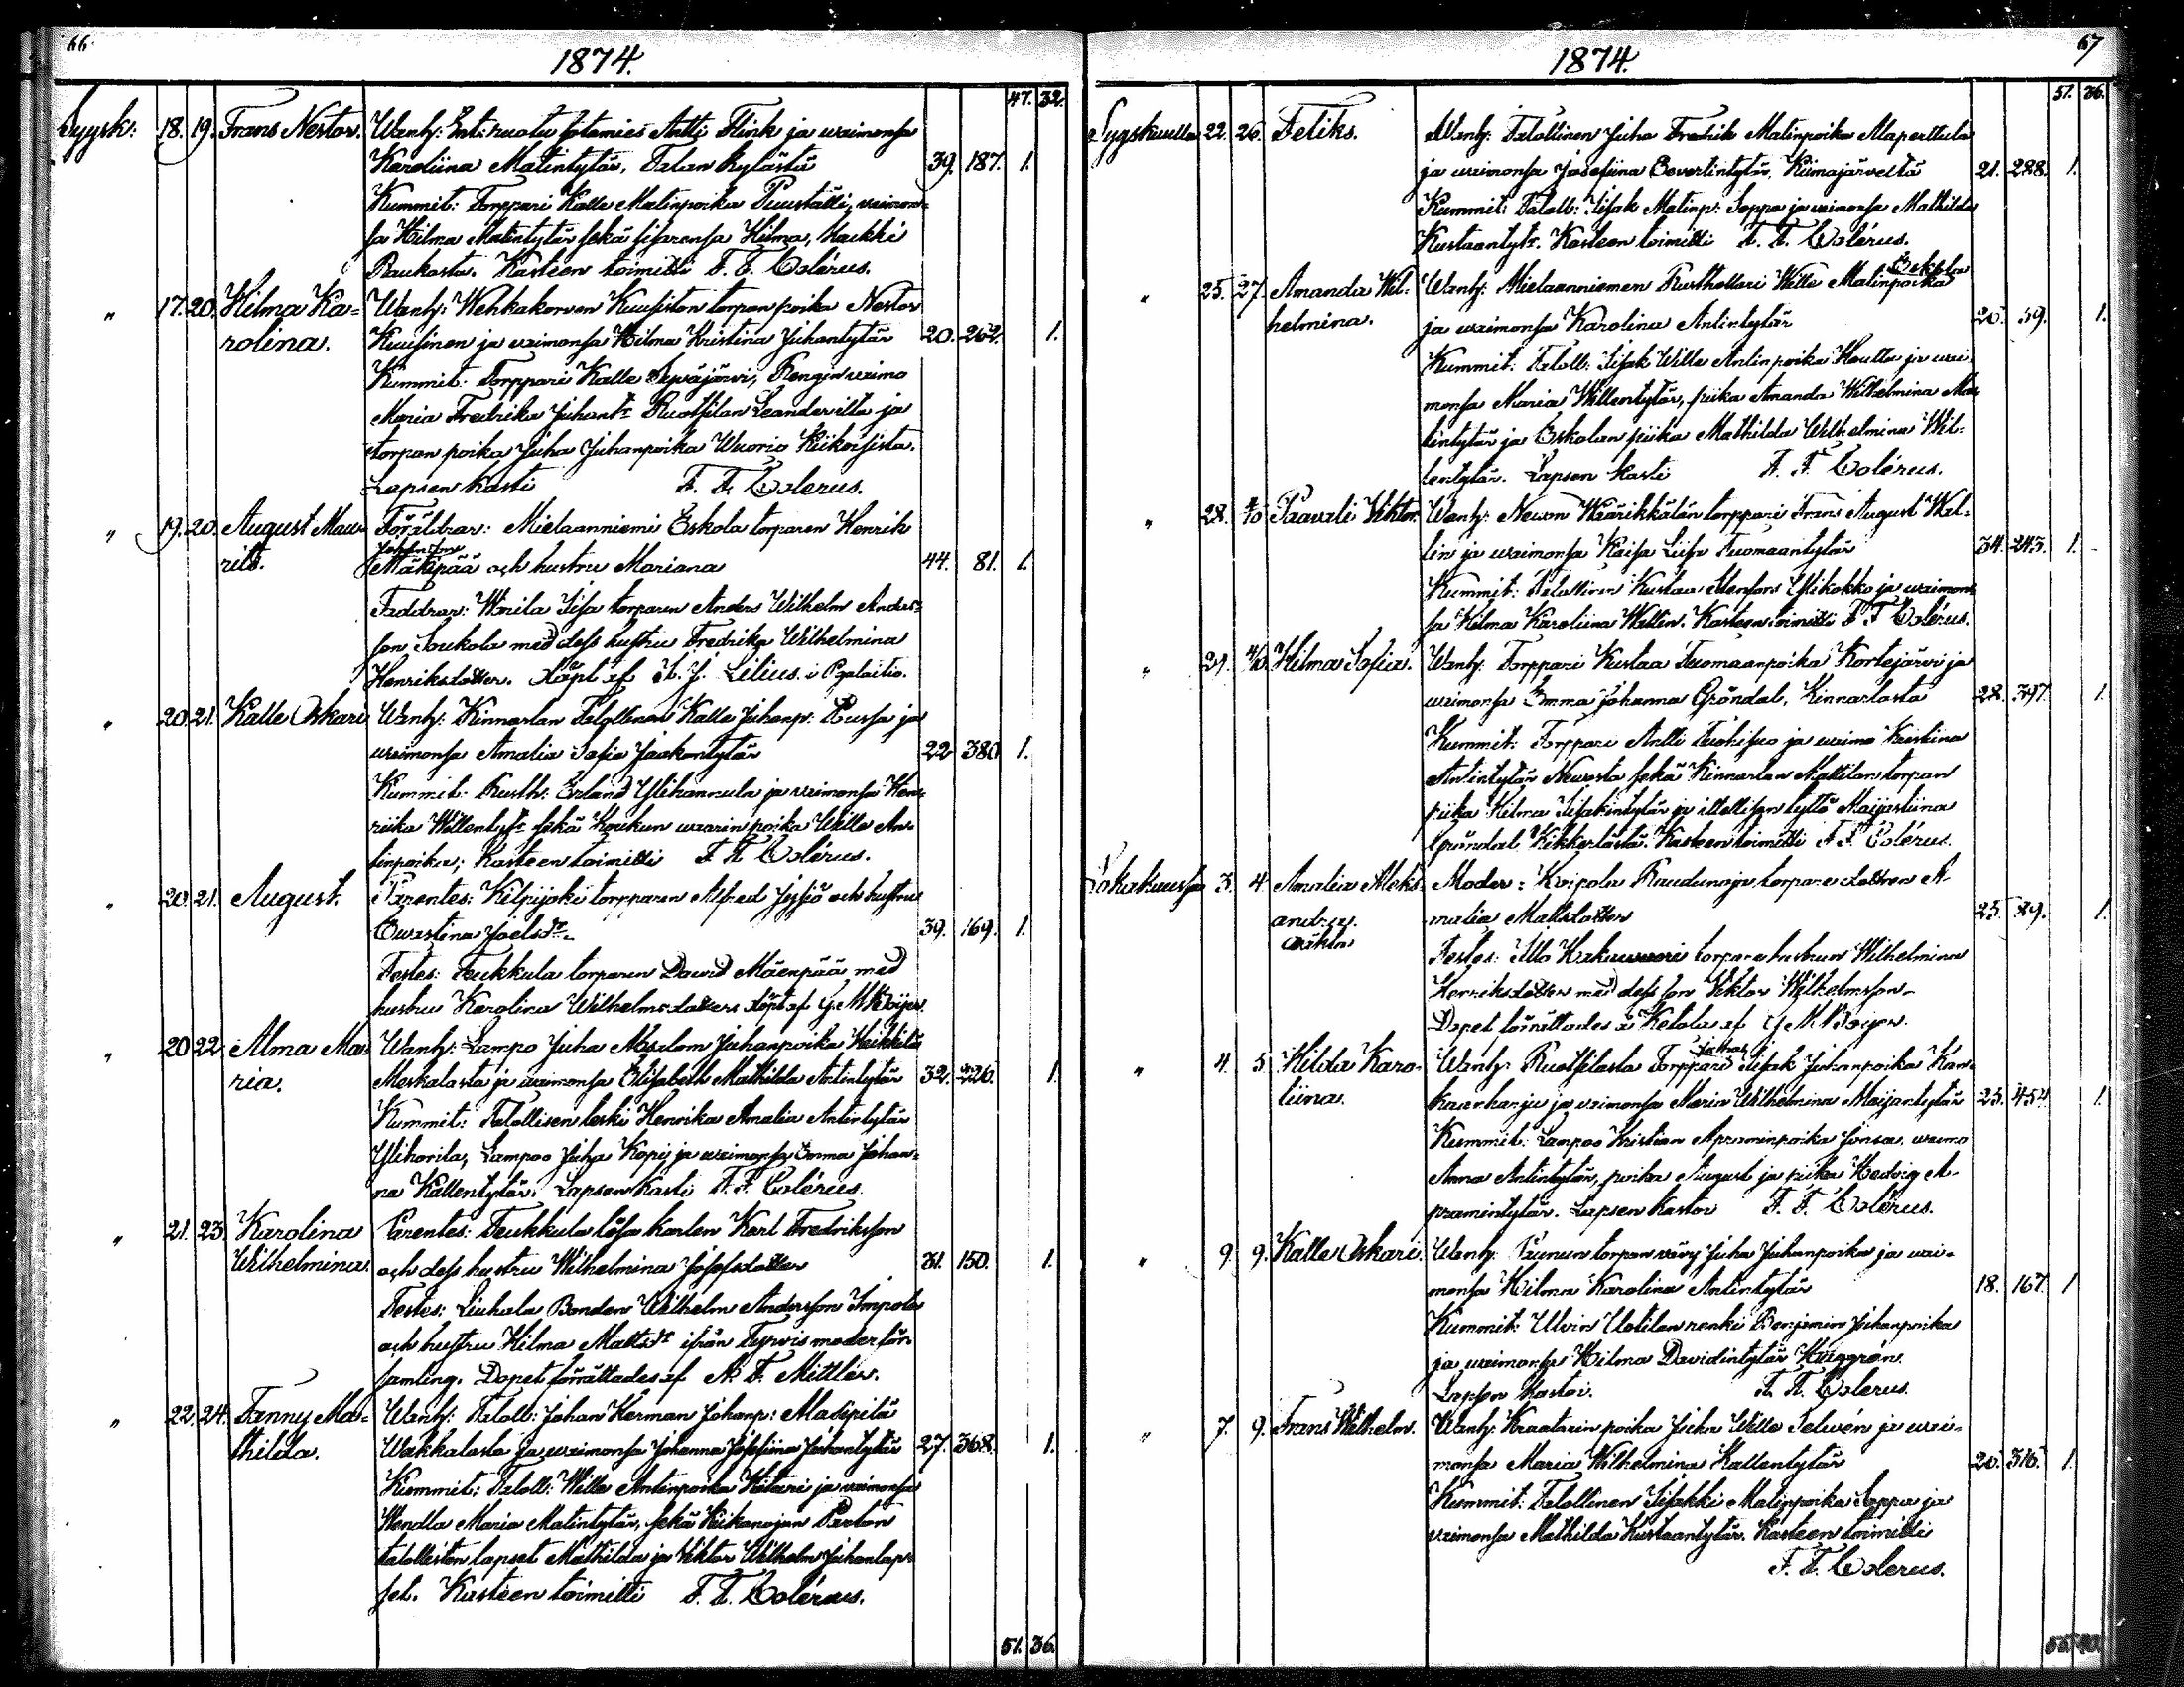 66.
1874.
47. 32.
Syysk: 18. 19. Frans Nestor. Wanh: Ent: ruotu sotamies Antti Flink ja waimonsa
Karoliina Matintytär, Talan kylästä 39. 187. 1.
Kummit: Torppari Kalle Matinpoika Puuställi, waimon-
sa Hilma Matintytär sekä sisarensa Hilma, Haukki
Raukosta. Kasteen toimitti F. F. Colérus.
" 17. 20. Hilma Ka= Wanh: Wehkakorven Kuusiston torpan poika Nestor
rolina. Kuusinen ja waimonsa Hilma Kristina Juhantytär 20. 262. 1.
Kummit: Torppari Kalle Sepäjärvi, Rengin waimo
Maria Fredrika Juhant: Ruotsilan Leanderilta ja
torpan poika Juha Juhanpoika Wuorio Kiikoisista.
Lapsen kasti F. F. Colerus.
" 19. 20. August Mau- Föräldrar: Mielaanniemi Eskola torparen Henrik
Johansson
ritz. Mäkipää och hustru Mariana 44. 81. 1.
Faddrar: Wänila Iisa torparen Anders Wilhelm Anders-
son Soukola med dess hustru Fredrika Wilhelmina
Henriksdotter. Döpt af K. J. Lilius. i Pgalaitio.
" 20. 21. Kalle Oskari Wanh: Kinnarlan Talollinen Kalle Juhanp: Pussa ja
waimonsa Amalia Sofia Jaakontytär 22 380 1.
Kummit: Rusth: Erland Ylihannula ja waimonsa Hen-
riika Willentyt: sekä Koukun waarin poika Wille An-
tinpoika; Kasteen toimitti F. F. Colérus.
" 20. 21. August. Parentes: Kilpijoki torpparen Alfred Jessiö och hustru
Ewastina Joelsdr. 39. 169. 1.
Testes: Teukkula torparen David Mäenpää med
hustru Karolina Wilhelmsdotter. döpt af G. M. Boijer.
" 20 22. Alma Ma- Wanh: Lampo Juha Absalom Juhanpoika Heikkilä
ria. Meskalasta ja waimonsa Elisabeth Mathilda Antintytär 32. 226. 1.
Kummit: Talollisen leski Henrika Amalia Antintytär
Ylihorila, Lampoo Juha Kopi ja waimonsa Emma Johan-
na Kallentytär. Lapsen kasti F. F. Colérus.
" 21. 23. Karolina Parentes: Teukkula lösa karlen Karl Fredriksson
Wilhelmina. och dess hustru Wilhelmina Josefsdotter 31. 150. 1.
Testes: Liuhala Bonden Wilhelm Andersson Impola
och hustru Hilma Mattsdr ifrån Tyrvis moder för-
samling. Dopet förrättades af A. F. Mittler.
" 22. 24. Fanny Ma= Wanh: Taloll: Johan Herman Johanp: Masipilä
thilda. Wakkalasta ja waimonsa Johanna Josefiina Juhantytär 27. 368. 1.
Kummit: Taloll: Wille Antinpoika Kitari ja waimonsa
Wendla Maria Matintytär, sekä Kiikanojan Parton
talolliston lapset Mathilda ja Viktor Wilhelm Juhanlap-
set. Kasteen toimitti F. F. Colérus.
51. 36.
67
1874.
51. 36.
Syyskuulla 22. 26. Feliks. Wanh: Talollinen Juha Fredrik Matinpoika Alaperttula
ja waimonsa Josefiina Eevertintytär, Kiimajärveltä 21. 288. 1.
Kummit: Taloll: Iisak Matinp: Soppa ja waimonsa Mathilda
Kustaantytr. Kasteen toimitti F. F. Colérus.
Eskola
" 25. 27. Amanda Wil- Wanh: Mielaanniemen Rusthollari Wille Matinpoika
helmina. ja waimonsa Karolina Antintytär 26. 59. 1.
Kummit: Taloll: Iisak Wille Antinpoika Hautta ja wai
monsa Maria Willentytär, piika Amanda Wilhelmina Ma-
tintytär ja Eskolan piika Mathilda Wilhelmina Wil-
lentytär. Lapsen kasti F. F. Colérus.
" 28. 4/10 Paavali Viktor. Wanh: Newon Määrikkälän torppari Frans August Wal-
lin ja waimonsa Kaisa Liisa Tuomaantytär 34. 243. 1.
Kummit: Talollinen Kustaa Stenfors Ylikokko ja waimon
sa Hilma Karoliina Wallen. Kasteen toimitti F. F. Colérus.
" 21. 4/10. Hilma Sofia. Wanh: Torppari Kustaa Tuomaanpoika Kortejärvi ja
waimonsa Emma Johanna Gröndal, Kinnarlasta 28. 397. 1.
Kummit: Torppari Antti Tuohisuo ja waimo Kristina
Antintytär Newosta sekä Kinnarlan Mattilan torpan
piika Hilma Iisakintytär ja itellisen tyttö Maijastiina
Gröndal Kikkerlästä. Kasteen toimitti F. F. Colérus.
Lokakuussa 3. 4. Amalia Aleks- Moder: Koipola Raudunoja torpare dottren A-
andra. malia Mattsdotter 25. 29. 1.
oäkta Testes: Illo Kakuwuori torpare hustrun Wilhelmina
Henriksdotter med dess son Viktor Wilhelmsson.
Dopet förrättades å Ketola af G. M. Boijer.
" 4. 5 Hilda Karo- Wanh: Ruotsilasta Torppari Iisak Juhanpoika Kan-
liina. kaanharju ja waimonsa Maria Wilhelmina Maijantytär 25. 454 1.
Kummit: Lampoo Kristian Apraminpoika Jönsa, waimo
Anna Antintytär, poika August ja piika Hedvig A-
pramintytär. Lapsen kastoi F. F. Colérus.
" 9. 9. Kalle Oskari. Wanh: Punun torpan vävy Juha Juhanpoika ja wai-
monsa Hilma Karolina Antintytär 18. 167. 1
Kummit: Ulvin Uotilan renki Benjamin Juhanpoika
ja waimonsa Hilma Davidintytär Häggrén.
Lapsen kastoi. F. F. Colerus.
" 7. 9. Frans Wilhelm. Wanh: Kraatarin poika Juha Wille Selwén ja wai-
monsa Maria Wilhelmina Kallentytär 20. 316. 1.
Kummit: Talollinen Iisakki Matinpoika Soppa ja
waimonsa Mathilda Kustaantytär. Kasteen toimitti
F. F. Colerus.
55. 40.